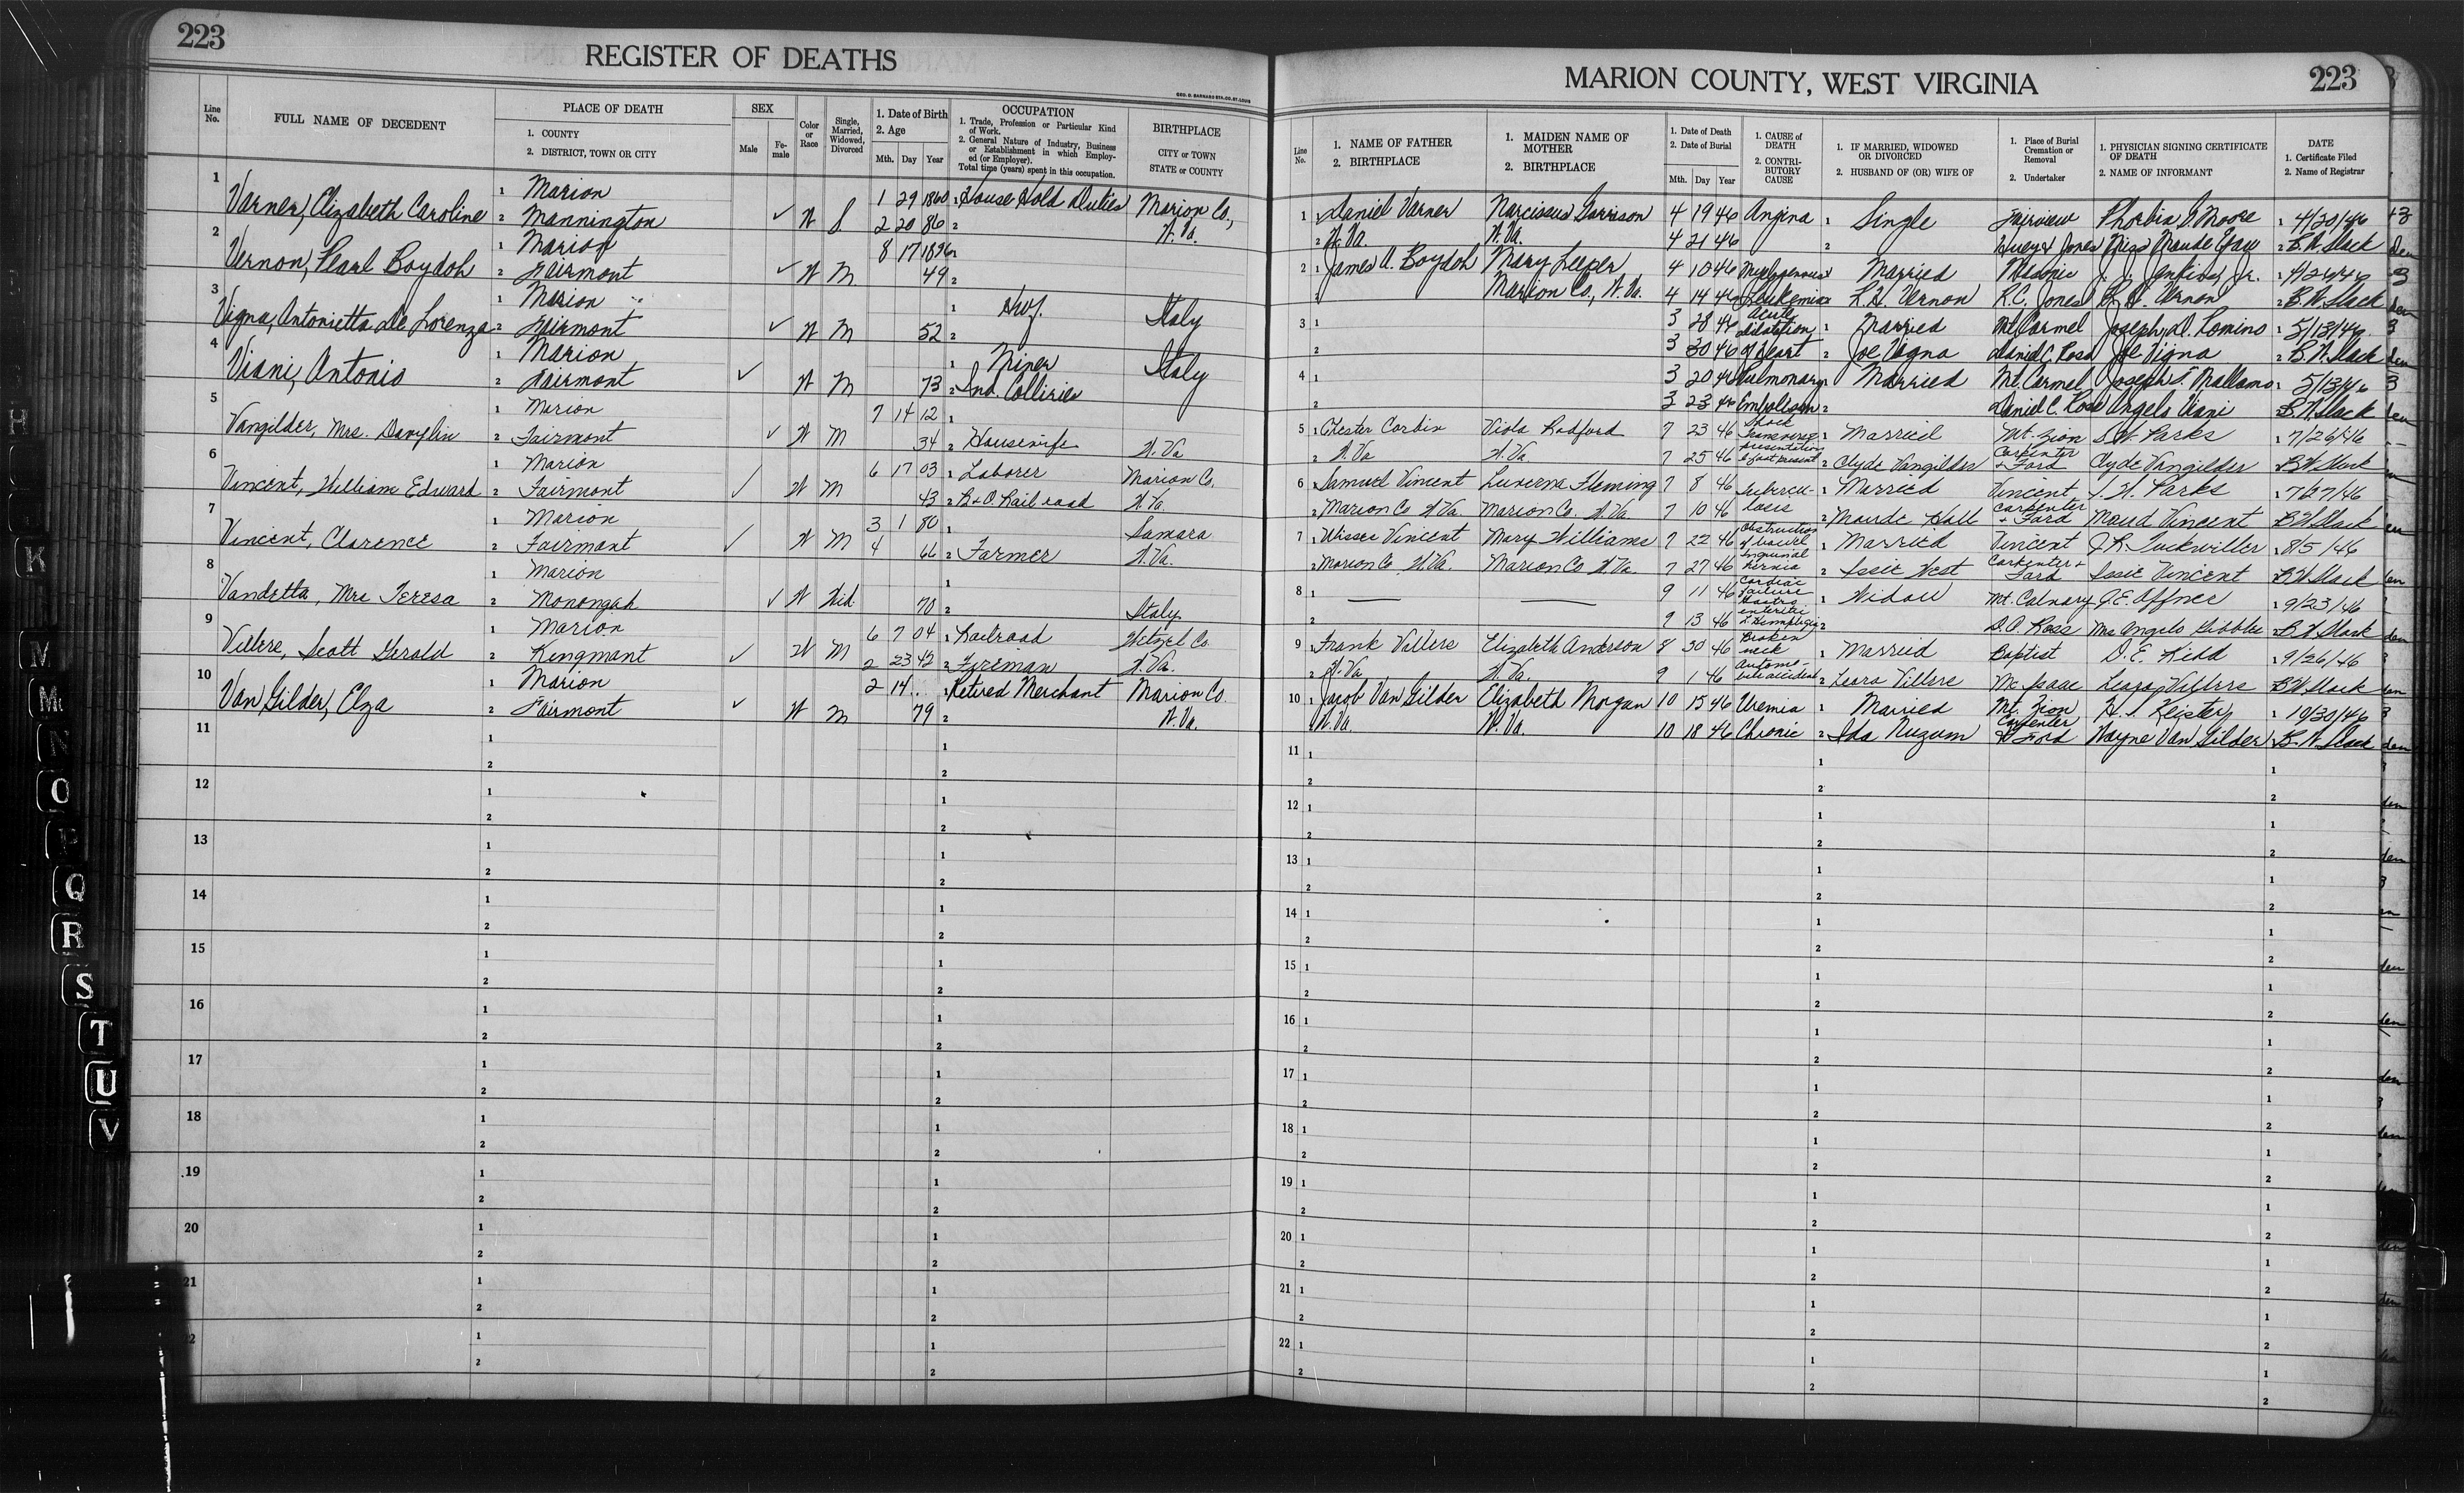 223
REGISTER OF DEATHS
Line No.
FULL NAME OF DECEDENT
PLACE OF DEATH
1. COUNTY
2. DISTRICT, TOWN OR CITY
SEX
Male
Fe-male
Color or Race
Single, Married, Widowed, Divorced
1. Date of Birth
2. Age
Mth. Day Year
OCCUPATION
1. Trade, Profession or Particular Kind of Work.
2. General Nature of Industry, Business or Establishment in which Employed (or Employer).
Total time (years) spent in this occupation.
BIRTHPLACE
CITY or TOWN
STATE or COUNTY
1 Varner, Elizabeth Caroline 1 Marion ✓ W S. 1 29 1860 1 House Hold Duties Marion Co.,
2 Mannington 2 20 86 2 W. Va.
2 Vernon, Pearl Boydoh 1 Marion ✓ W M 8 17 1896 1
2 Fairmont 49 2
3 Vigna, Antonietta De Lorenza 1 Marion ✓ W M 1 Hwf. Italy
2 Fairmont 52 2
4 Viani, Antonio 1 Marion ✓ W M 1 Miner Italy
2 Fairmont 73 2 Ind. Colliries
5 Vangilder, Mrs. 1 Marion ✓ W M 7 14 12 1
2 Fairmont 34 2 Housewife W. Va
6 Vincent, William Edward 1 Marion ✓ W M 6 17 03 1 Laborer Marion Co.
2 Fairmont 43 2 B & O. Rail road W. Va.
7 Vincent, Clarence 1 Marion ✓ W M 3 1 80 1 Samara
2 Fairmont 4 66 2 Farmer W. Va.
8 Vandetta, Mrs Teresa 1 Marion ✓ W Wid. 1
2 Monongah 70 2 Italy
9 Villers, Scott Gerald 1 Marion ✓ W M 6 7 04 1 Railroad Wetzel Co.
2 Kingmont 2 23 42 2 Fireman W. Va.
10 Van Gilder, Elza 1 Marion ✓ W M 2 14 1 Retired Merchant Marion Co.
2 Fairmont 79 2 W. Va.
11
12
13
14
15
16
17
18
19
20
21
22
MARION COUNTY, WEST VIRGINIA
223
Line No.
1. NAME OF FATHER
2. BIRTHPLACE
1. MAIDEN NAME OF MOTHER
2. BIRTHPLACE
1. Date of Death
2. Date of Burial
Mth. Day Year
1. CAUSE of DEATH
2. CONTRIBUTORY CAUSE
1. IF MARRIED, WIDOWED OR DIVORCED
2. HUSBAND OF (OR) WIFE OF
1. Place of Burial Cremation or Removal
2. Undertaker
1. PHYSICIAN SIGNING CERTIFICATE OF DEATH
2. NAME OF INFORMANT
DATE
1. Certificate Filed
2. Name of Registrar
1 1 Daniel Varner Narcissus Garrison 4 19 46 Angina 1 Single Fairview Phoebia S. Moore 1 4/20/46
2 W. Va. W. Va. 4 21 46 2 Huey & Jones Miss Maude Yaw 2 B. W. Slack
2 1 James A. Boydoh Mary Leeper 4 10 46 Myelogenous 1 Married Masonic J. J. Jenkins, Jr. 1 4/24/46
2 Marion Co., W. Va. 4 14 46 Leukemia 2 L. H. Vernon R. C. Jones L. H. Vernon 2 B. W. Slack
3 1 3 28 46 Acute dilatation 1 Married Mt. Carmel Joseph D. Romino 1 5/13/46
2 3 30 46 of heart 2 Joe Vigna Daniel C. Rosa Joe Vigna 2 B. W. Slack
4 1 3 20 46 Pulmonary 1 Married Mt. Carmel Joseph T. Mallamo 1 5/13/46
2 3 23 46 Embolism 2 Daniel C. Rose Angelo Viani 2 B. W. Slack
5 1 Chester Corbin Viola Radford 7 23 46 Shock Transverse 1 Married Mt. Zion S. W. Parks 1 7/26/46
2 W. Va W. Va 7 25 46 presentation & foot present 2 Clyde Vangilder Carpenter & Ford Clyde Vangilder B W Slack
6 1 Samuel Vincent Luverna Fleming 7 8 46 Tubercu- 1 Married Vincent S. W. Parks 1 7/27/46
2 Marion Co W. Va. Marion Co. W. Va. 7 10 46 losis 2 Maude Hall Carpenter & Ford Maud Vincent B W Slack
7 1 Vincent Mary Williams 7 22 46 Obstruction of bowel 1 Married Vincent J. R. Tuckwiller 1 8/5/46
2 Marion Co W. Va. Marion Co W. Va. 7 27 46 Inguinal hernia 2 Issie West Carpenter & Ford Issie Vincent B. W. Slack
8 1 — — 9 11 46 Cardiac failure 1 Widow Mt. Calvary J. E. Offner 1 9/23/46
2 9 13 46 Gastro enteritis L Hemiplegia 2 D. A. Ross Mrs Angelo Gibble 2 B. W. Slack
9 1 Frank Villers Elizabeth Anderson 8 30 46 Broken neck 1 Married Baptist D. E. Kidd 1 9/26/46
2 W. Va W. Va. 9 1 46 Automo- bile accident 2 Leara Villers Mc Isaac Leara Villers B W Slack
10 1 Jacob Van Gilder Elizabeth Morgan 10 15 46 Uremia 1 Married Mt. Zion H. S. Keister 1 10/30/46
2 W. Va. W. Va. 10 18 46 Chronic 2 Ida Nuzum Carpenter & Ford Wayne Van Gilder 2 B. W. Slack
11
12
13
14
15
16
17
18
19
20
21
22
H
K
M
Mc
N
O
P
Q
R
S
T
U
V